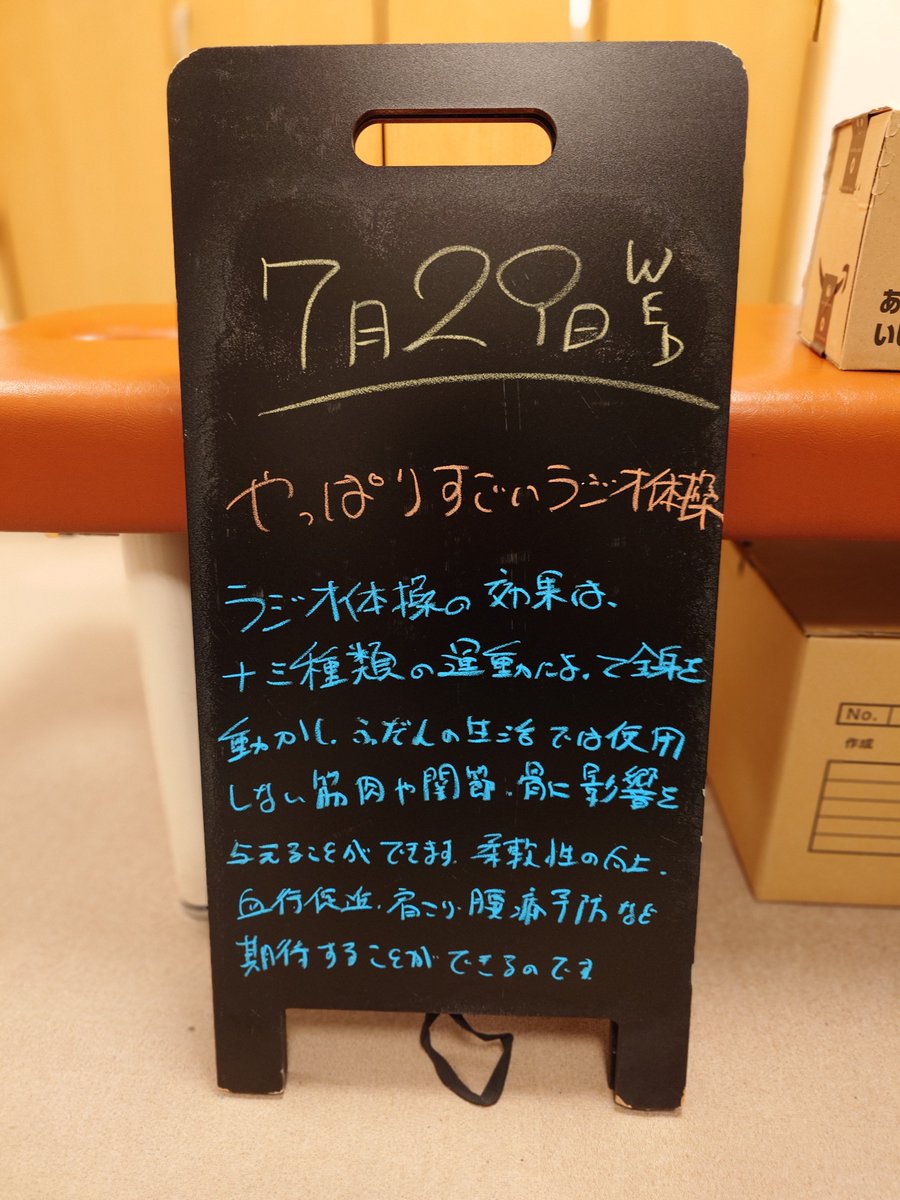 7月29日 WED
やっぱりすごいラジオ体操
ラジオ体操の効果は、
十三種類の運動によって全身を
動かし、ふだんの生活では使用
しない筋肉や関節、骨に影響を
与えることができます。柔軟性の向上、
血行促進、肩こり、腰痛予防など
期待することができるのです
あ
い
No.
作成